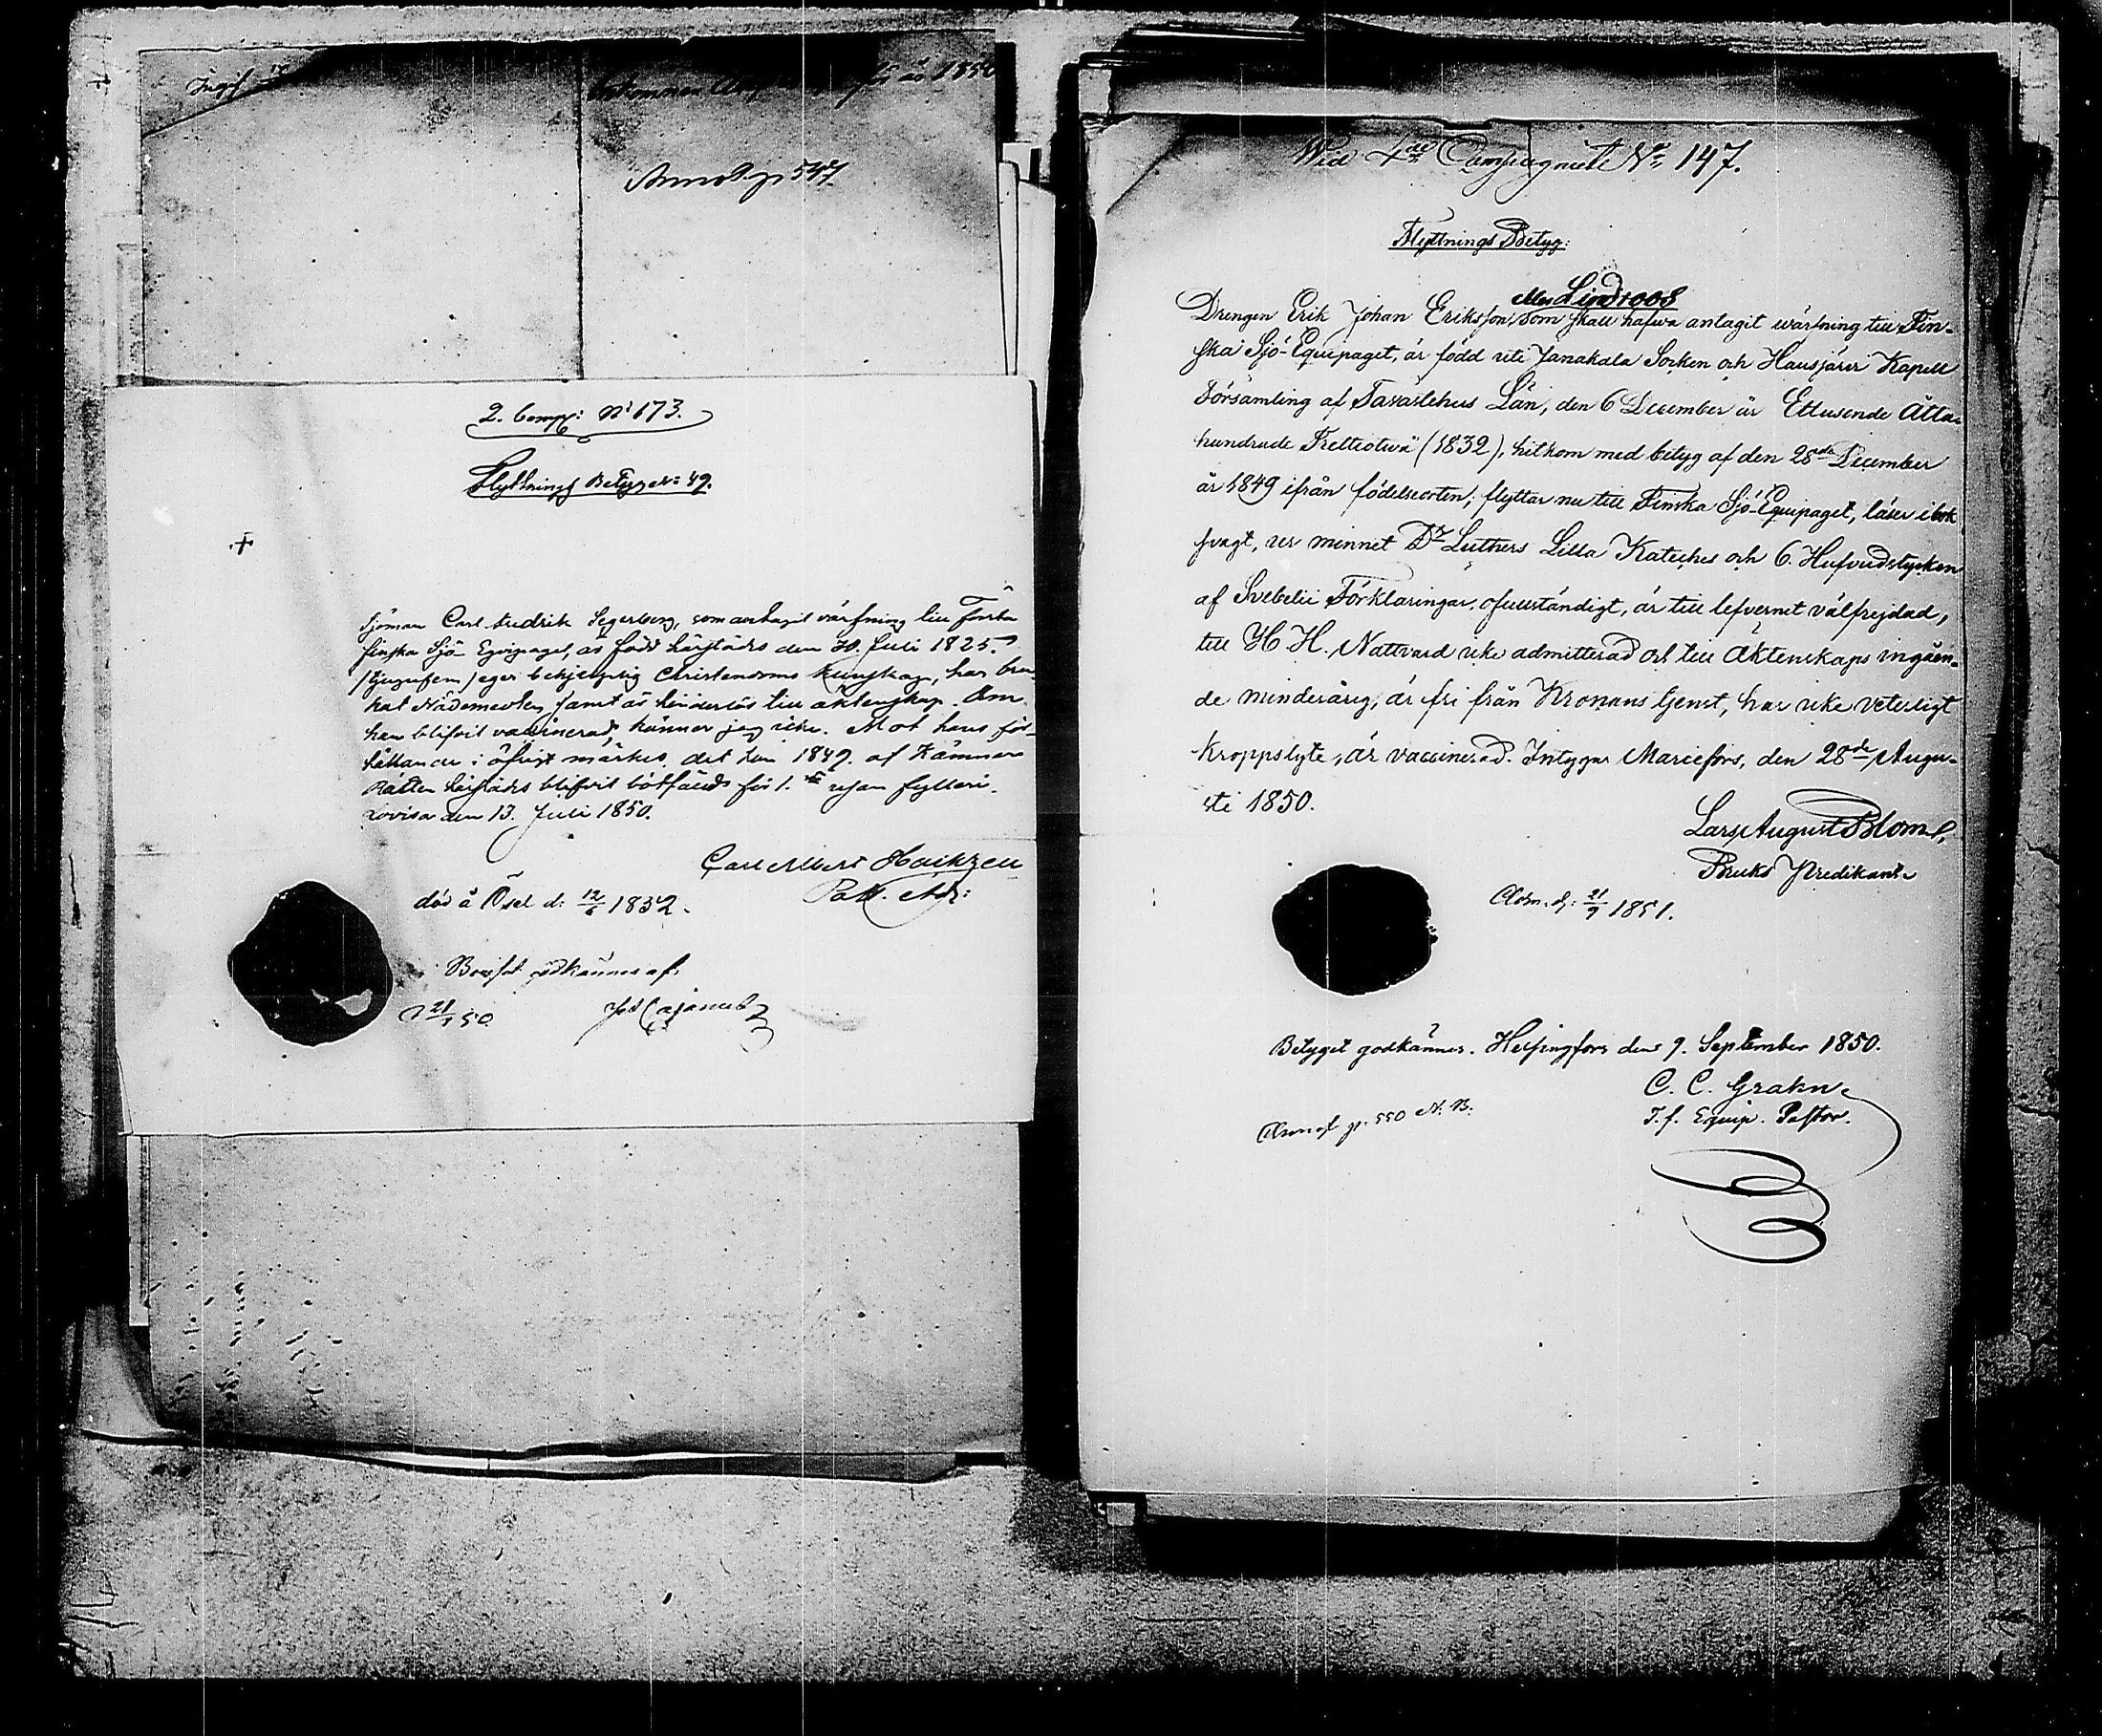 Ankomna år 1850
Annot. p 547.
2. Comp: No 173.
Flyttnings Betyg No: 49.
+
Sjöman Carl Fredrik Segerberg, som antagit värfning till Första
Finska Sjö-Equipaget, är född härstädes den 30. Juli 1825.
/tjugufem/ eger behjelplig Christendoms kunskap, har bru-
kat Nådemedlen samt är hinderlös till äktenskap. Om
han blifvit vaccinerad, känner jag icke. Mot hans för-
hållande i öfrigt märkes, det han 1849. af Kämners
Rätten härstädes blifvit bötfäld för 1. resan fylleri.
Lovisa den 13. Juli 1850.
Carl Albert
Past. Adj:
död å Ösel d: 12/6 1852.
Bevist godkännes af
d 21/ 50
Cajanus
Wid 4de Compagniet No 147.
Flyttnings Betyg:
eller Lindroos
Drengen Erik Johan Eriksson, som skall hafwa antagit wärfning till Fin-
ska Sjö-Equipaget, är född uti Janakala Socken och Hausjärvi Kapell
Församling af Tavastehus Län, den 6 December år Ettusende Åtta-
hundrade Trettiotvå (1832), hitkom med betyg af den 28de December
år 1849 ifrån födelseorten; flyttar nu till Finska Sjö-Equipaget, läser i bok
svagt, ur minnet Dr Luthers Lilla Kateches och 6. Hufvudstycken
af Svebelii Förklaringar, ofullständigt, är till lefvernet välfrejdad,
till H. H. Nattvard icke admitterad och till Äktenskaps ingåen-
de minderårig, är fri från Kronans tjenst, har icke veterligt
kroppslyte, är vaccinerad. Intygar Mariefors, den 28de Augu-
sti 1850.
Lars August Blom,
Bruks Predikant.
Adm. d: 21/9 1851.
Betyget godkännes. Helsingfors den 9. September 1850.
C. C. Grahn
T. f. Equip. Pastor.
Annot p. 550 N. B.